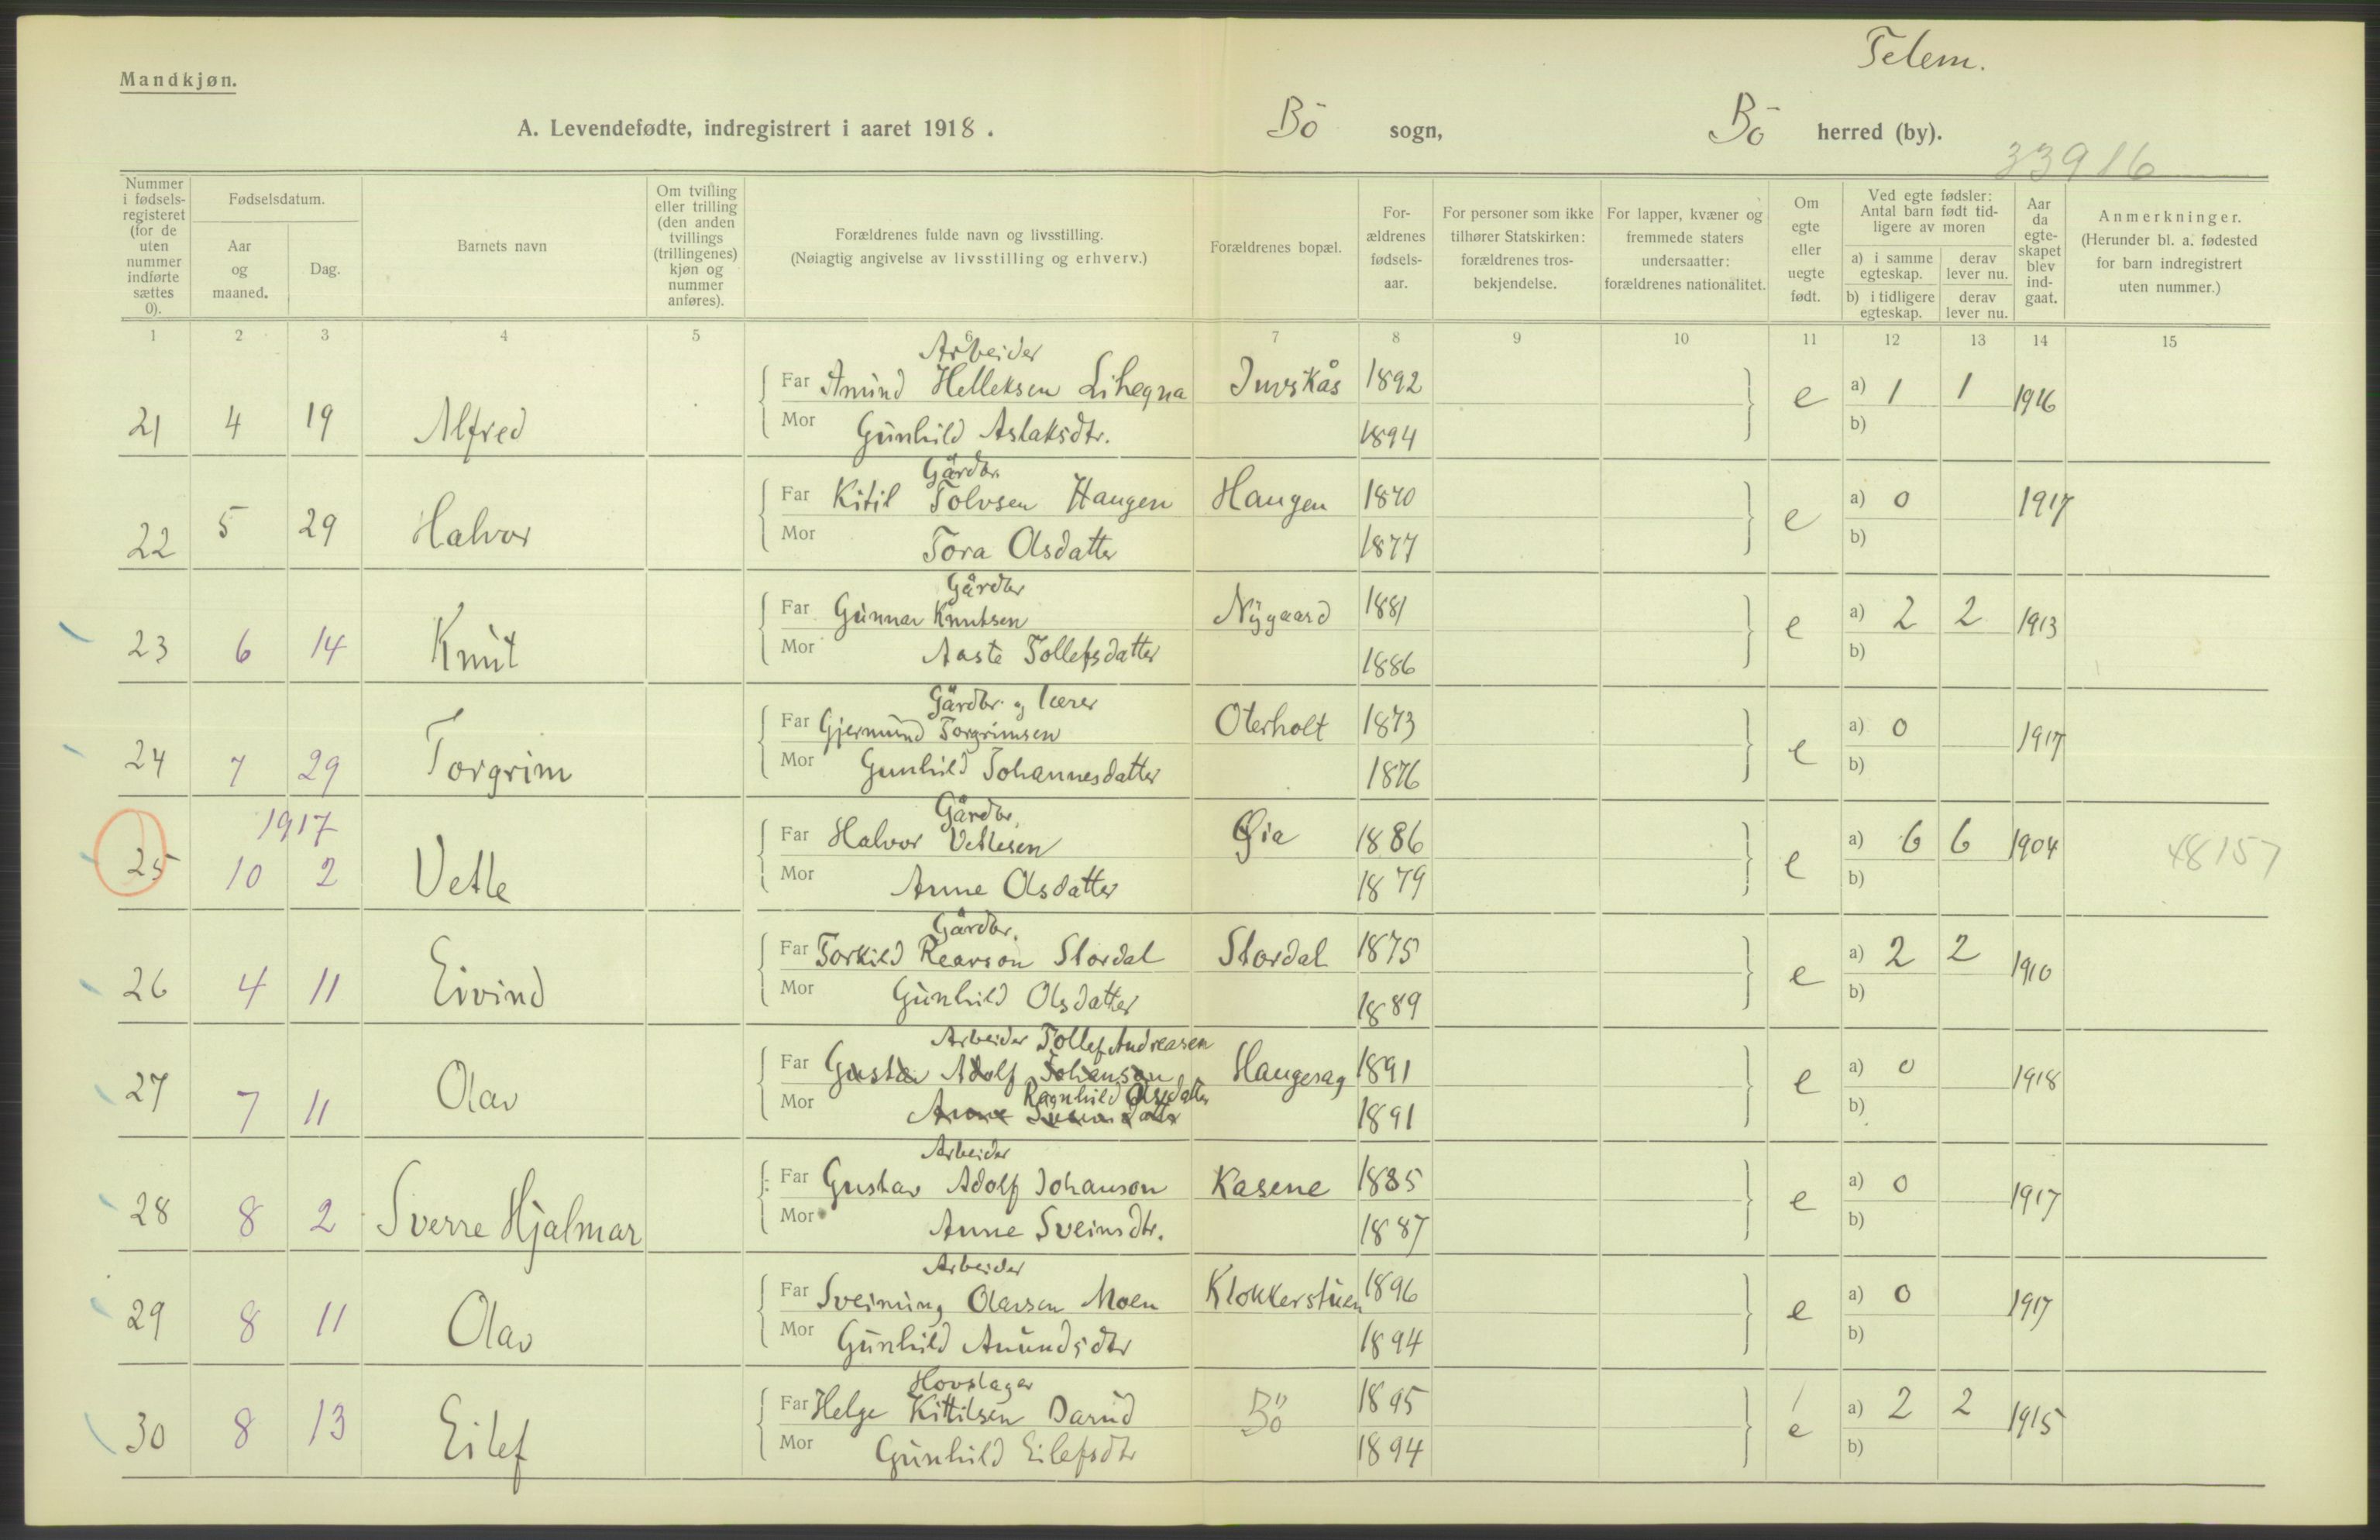 Telem.
Mandkjøn.
A. Levendefødte, indregistrert i aaret 1918. Bö sogn, Bö herred (by).
33916
Nummer i fødsels-registeret (for de uten nummer indførte sættes 0).
Fødselsdatum.
Aar og maaned.
Dag.
Barnets navn
Om tvilling eller trilling (den anden tvillings (trillingenes) kjøn og nummer anføres).
Forældrenes fulde navn og livsstilling.
(Nøiagtig angivelse av livsstilling og erhverv.)
Forældrenes bopæl.
For-ældrenes fødsels-aar.
For personer som ikke tilhører Statskirken: forældrenes tros-bekjendelse.
For lapper, kvæner og fremmede staters undersaatter: forældrenes nationalitet.
Om egte eller uegte født.
Ved egte fødsler: Antal barn født tid-ligere av moren
a) i samme egteskap.
derav lever nu.
b) i tidligere egteskap.
derav lever nu.
Aar da egte-skapet blev ind-gaat.
Anmerkninger.
(Herunder bl. a. fødested for barn indregistrert uten nummer.)
1 2 3 4 5 6 7 8 9 10 11 12 13 14 15
Arbeider
21 4 19 Alfred Far Amund Helleksen Lihegna Juvskås 1892 e a) 1 1 1916
Mor Gunhild Aslaksdtr. 1894 b)
Gårdbr.
22 5 29 Halvor Far Kitil Tolvsen Haugen Haugen 1870 e a) 0 1917
Mor Tora Olsdatter 1877 b)
Gårdbr
23 6 14 Knut Far Gunnar Knutsen Nygaard 1881 e a) 2 2 1913
Mor Aaste Tollefsdatter 1886 b)
Gårdbr. og lærer
24 7 29 Torgrim Far Gjermund Torgrimsen Oterholt 1873 e a) 0 1917
Mor Gunhild Johannesdatter 1876 b)
1917 Gårdbr.
25 10 2 Vetle Far Halvor Vetlesen Øia 1886 e a) 6 6 1904 48157
Mor Anne Olsdatter 1879 b)
Gårdbr.
26 4 11 Eivind Far Torkild Rearson Stordal Stordal 1875 e a) 2 2 1910
Mor Gunhild Olsdatter 1889 b)
Arbeider Tollef Andreasen
27 7 11 Olav Far Gustav Adolf Johanson Haugesag 1891 e a) 0 1918
Ragnhild Olsdatter
Mor Anne Sveinsdatter 1891 b)
Arbeider
28 8 2 Sverre Hjalmar Far Gustav Adolf Johanson Kasene 1885 e a) 0 1917
Mor Anne Sveinsdtr. 1887 b)
Arbeider
29 8 11 Olav Far Sveinung Olavsen Moen Klokkerstuen 1896 e a) 0 1917
Mor Gunhild Amundsdtr 1894 b)
Hovslager
30 8 13 Eilef Far Helge Kittilsen Darud Bö 1895 e a) 2 2 1915
Mor Gunhild Eilefsdtr 1894 b)